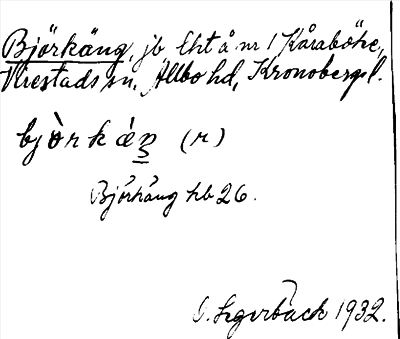 Björkäng, jb lht å nr 1 Kåraböke,
Virestads sn, Allbo hd, Kronobergs l.
bjòrkáŋ (r)
Björkäng hb 26.
O. Segerbäck 1932.